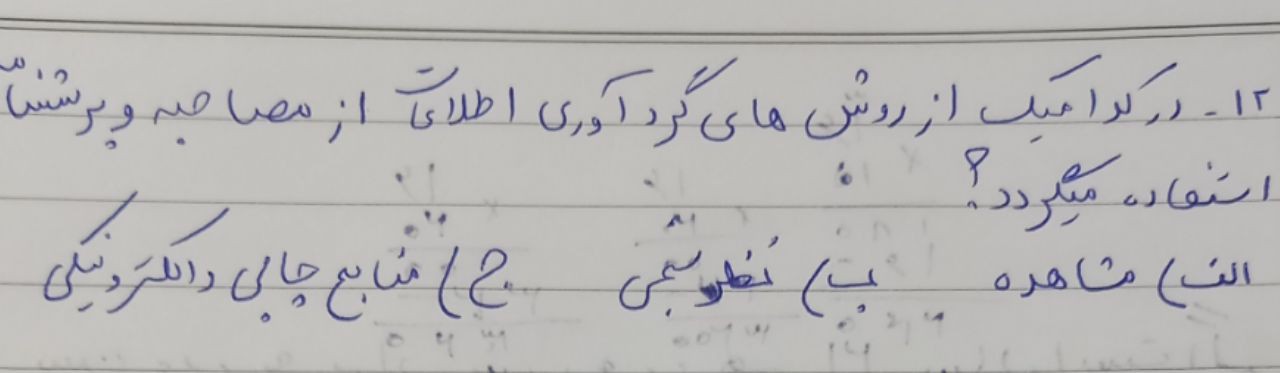 ۱۲- در کدامیک از روش های گردآوری اطلاعات از مصاحبه و پرسشنامه
استفاده میگردد؟
الف) مشاهده ب) نظرسنجی ج) منابع چاپی و الکترونیکی